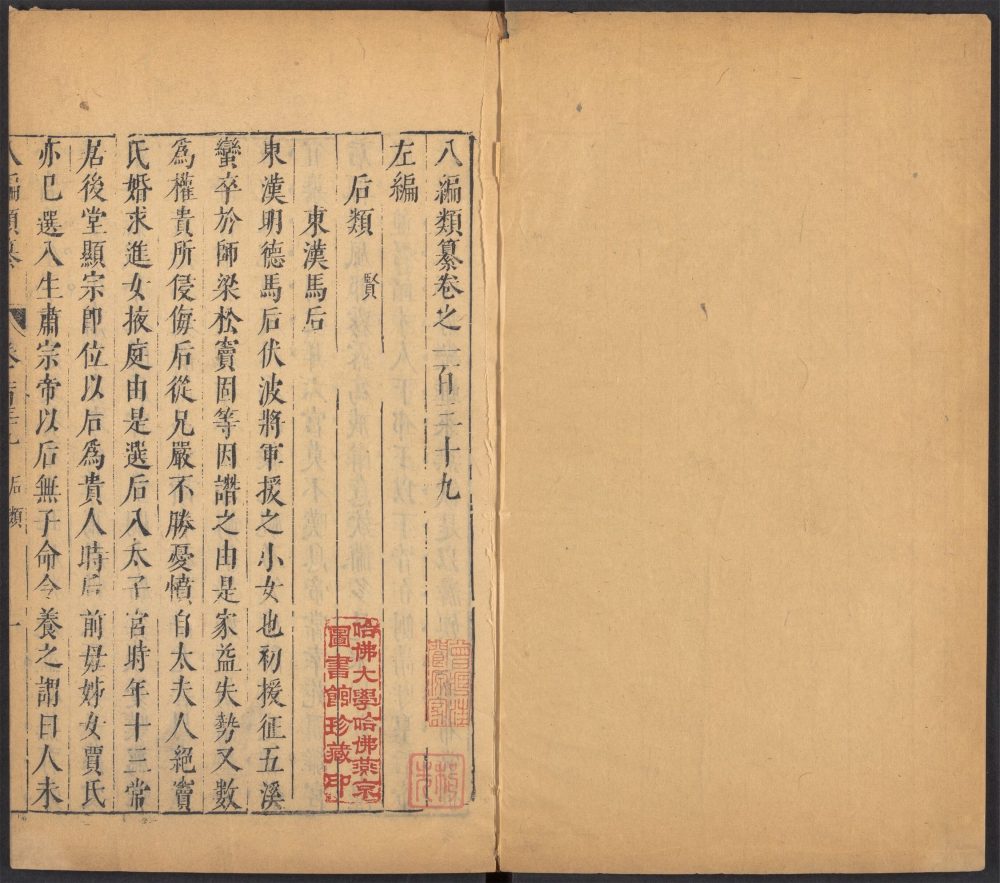 八編類纂卷之一百一十九
左編
后類 賢
東漢馬后
東漢明德馬后伏波將軍援之小女也初援征五溪
蠻卒於師梁松竇固等因譖之由是家益失勢又數
爲權貴所侵侮后從兄嚴不勝憂憤白太夫人絕竇
氏婚求進女掖庭由是選后入太子宮時年十三常
居後堂顯宗卽位以后爲貴人時后前母姊女賈氏
亦已選入生肅宗帝以后無子命令養之謂曰人未
八編類纂 卷 后類 一
哈佛大學哈佛燕京
圖書館珍藏印